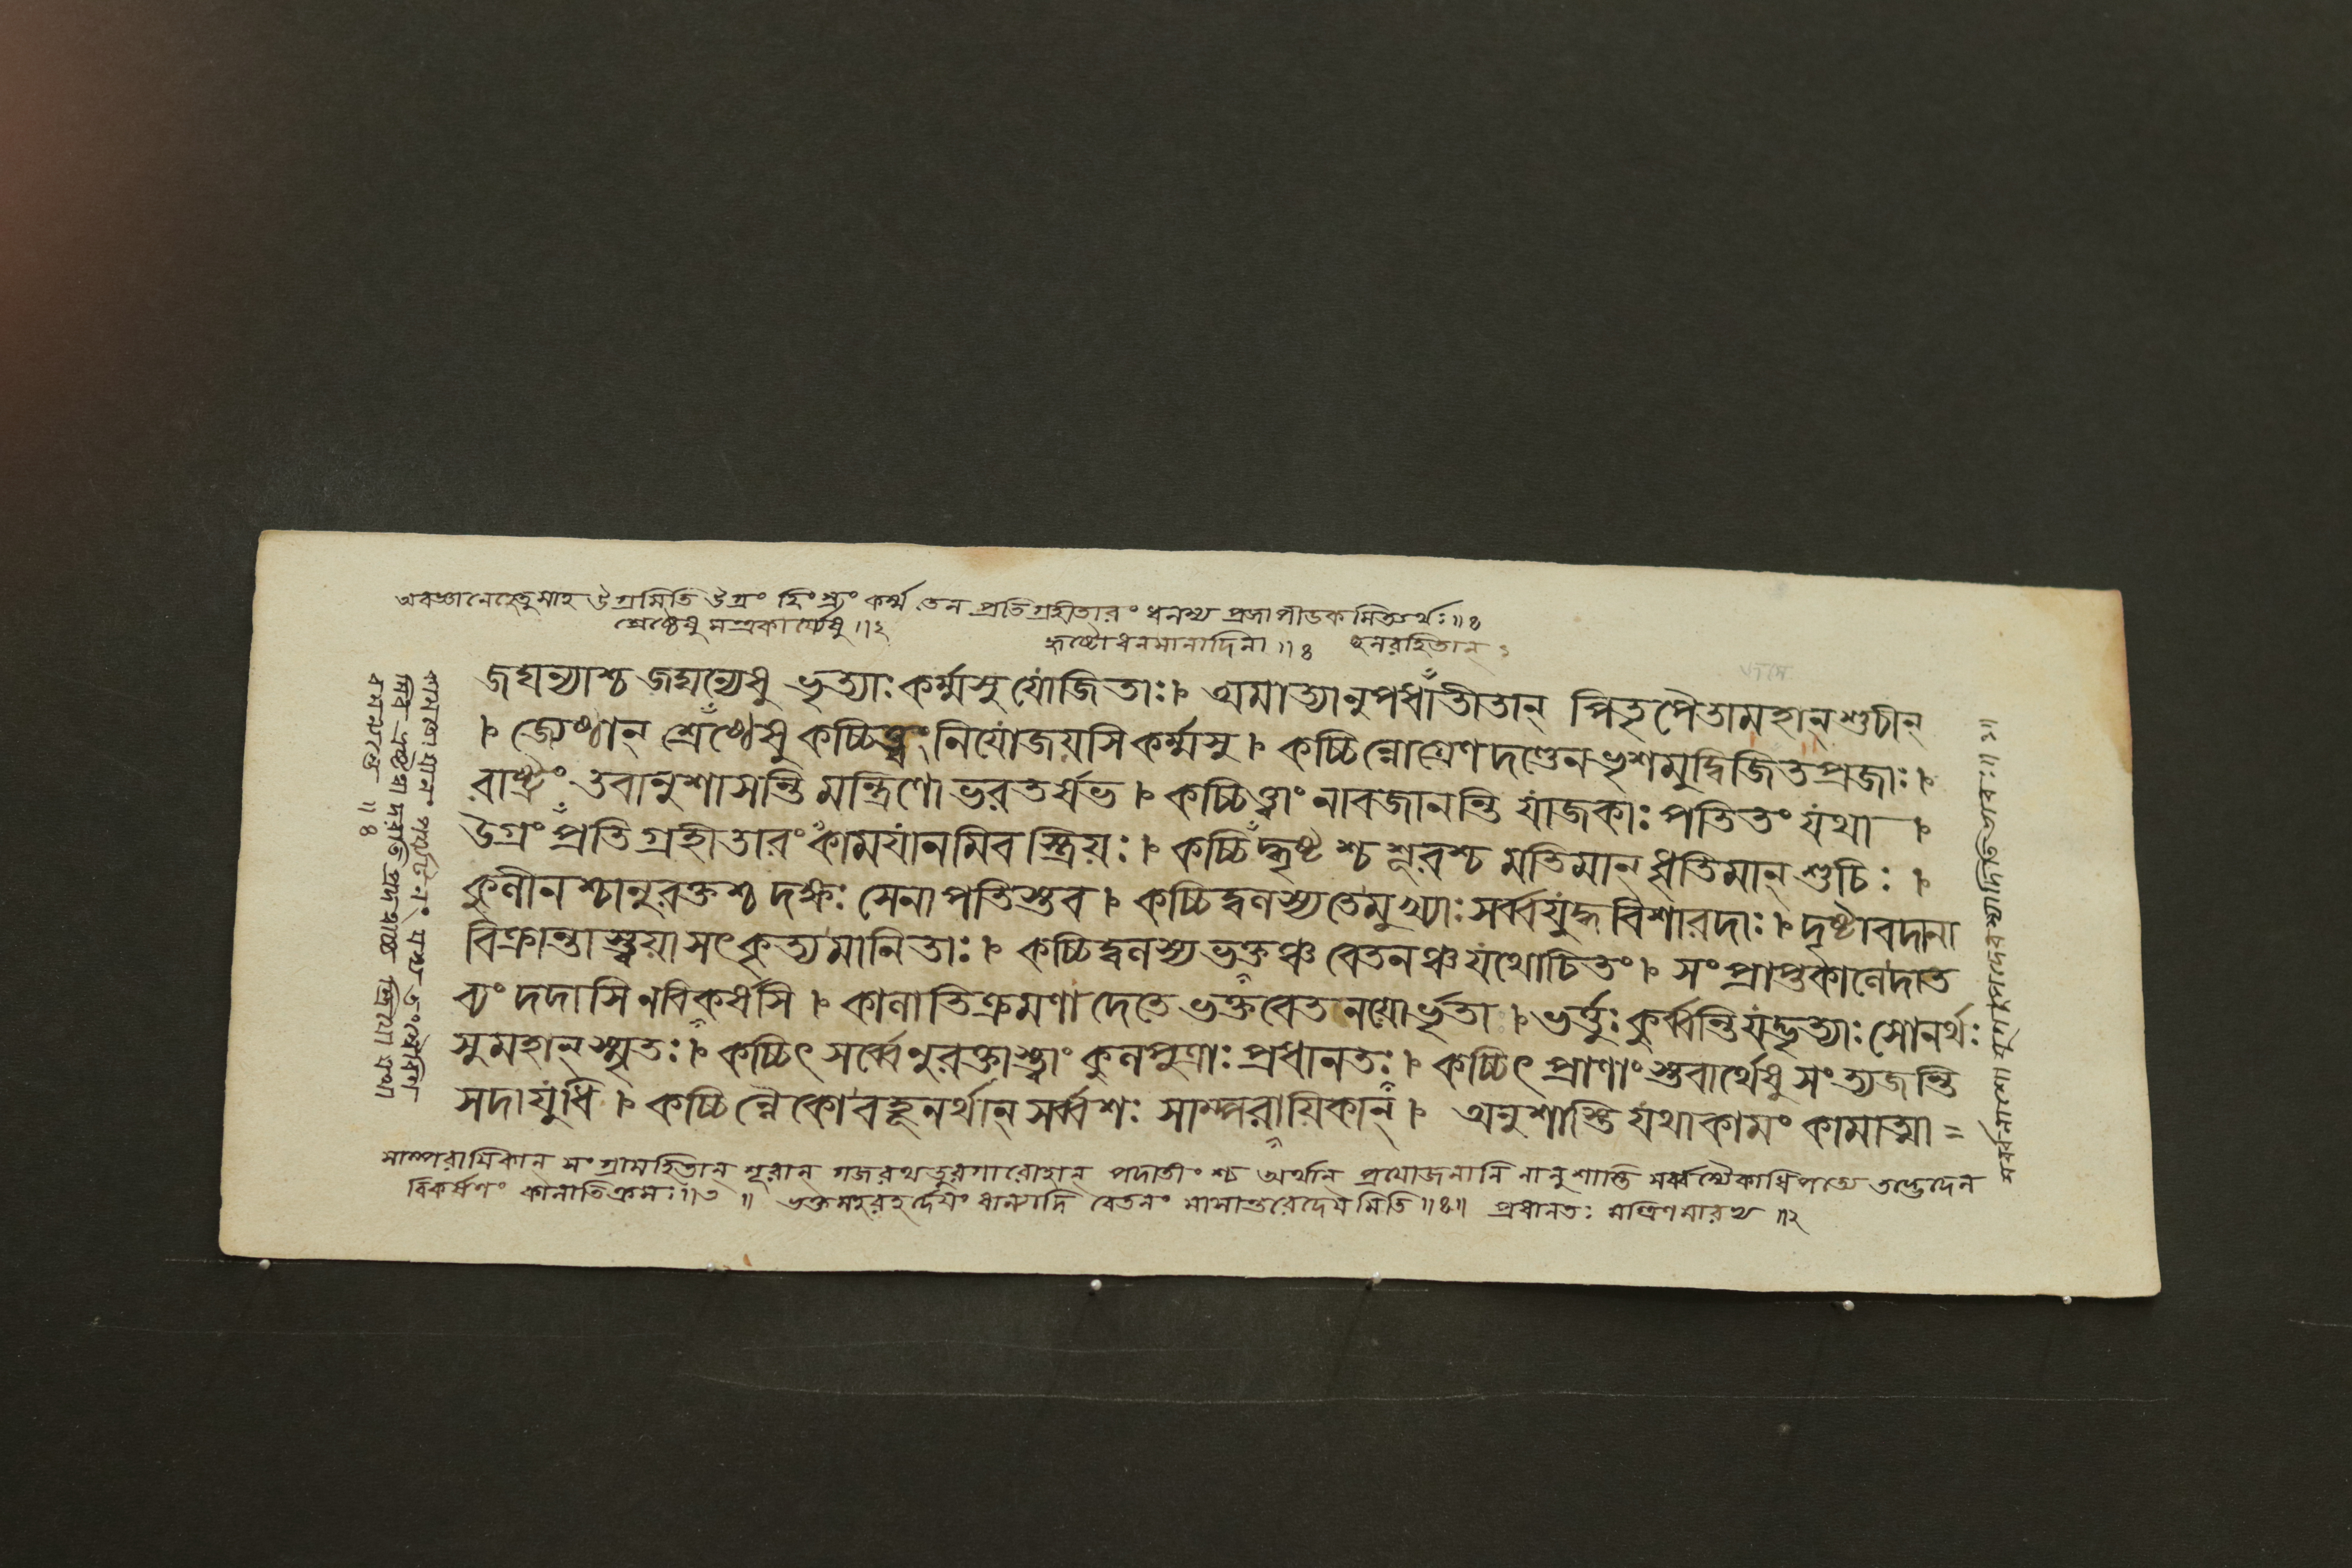 অবজ্ঞানেহেতুমাহ উগ্রমিতি উগ্রং হিংস্রং কর্ম্ম তেন প্রতিগ্রহীতারং ধনস্য প্রজাপীডকমিত্যর্থঃ॥
শ্রেষ্ঠেষু মন্ত্রকার্য্যেষু ॥২
হৃষ্টোধনমানাদিনা ॥ ছলরহিতান্
জঘন্যাশ্চ জঘন্যেষু ভৃত্যাঃ কর্ম্মসু যোজিতাঃ। অমাত্যানুপধাতীতান্ পিতৃপৈতামহান্ শুচীন্
। জ্যেষ্ঠান্ শ্রেষ্ঠেষু কচ্চিত্ত্বং নিযোজয়সি কর্ম্মসু। কচ্চিন্নোগ্রেণ দণ্ডেন ভৃশমুদ্বিজিতপ্রজাঃ।
রাষ্ট্রং তবানুশাসন্তি মন্ত্রিণো ভরতর্ষভ। কচ্চিত্ত্বাং নাবজানন্তি যাজকাঃ পতিতং যথা।
উগ্রং প্রতিগ্রহীতারং কাময়ানমিব স্ত্রিয়ঃ। কচ্চিদ্ধৃষ্টশ্চ শূরশ্চ মতিমান্ ধৃতিমান্ শুচিঃ।
কুলীনশ্চানুরক্তশ্চ দক্ষঃ সেনাপতিস্তব। কচ্চিদ্বলস্য তে মুখ্যাঃ সর্ব্বযুদ্ধবিশারদাঃ। দৃষ্টাবদানা
বিক্রান্তাস্ত্বয়া সৎকৃত্য মানিতাঃ। কচ্চিদ্বলস্য ভক্তঞ্চ বেতনঞ্চ যথোচিতং। সংপ্রাপ্তকালে দাত
ব্যং দদাসি ন বিকর্ষসি। কালাতিক্রমণাদেতে ভক্তবেতনয়োর্ভৃতা। ভর্ত্তুঃ কুর্ব্বন্তি যদ্ভৃত্যাঃ সোনর্থঃ
সুমহান্ স্মৃতঃ। কচ্চিৎ সর্ব্বেনুরক্তাস্ত্বাং কুলপুত্রাঃ প্রধানতঃ। কচ্চিৎ প্রাণাংস্তবার্থেষু সংত্যজন্তি
সদা যুধি। কচ্চিন্নৈকো বহূনর্থান্ সর্ব্বশঃ সাম্পরায়িকান্। অনুশাস্তি যথাকামং কামাত্মা =
সাম্পরায়িকান্ সংগ্রামহিতান্ শূরান্ গজরথতুরগারোহান্ পদাতীংশ্চ অর্থান্ প্রয়োজনানি নানুশাস্তি সর্ব্বস্যৈকাধিপত্যে তদ্ভেদেন
বিকর্ষণং কালাতিক্রমঃ॥৩॥ ভক্তমহরহর্দেয়ং ধান্যাদি বেতনং মাসান্তরেদেয়মিতি॥ প্রধানতঃ মন্ত্রিণমারভ্য ॥২